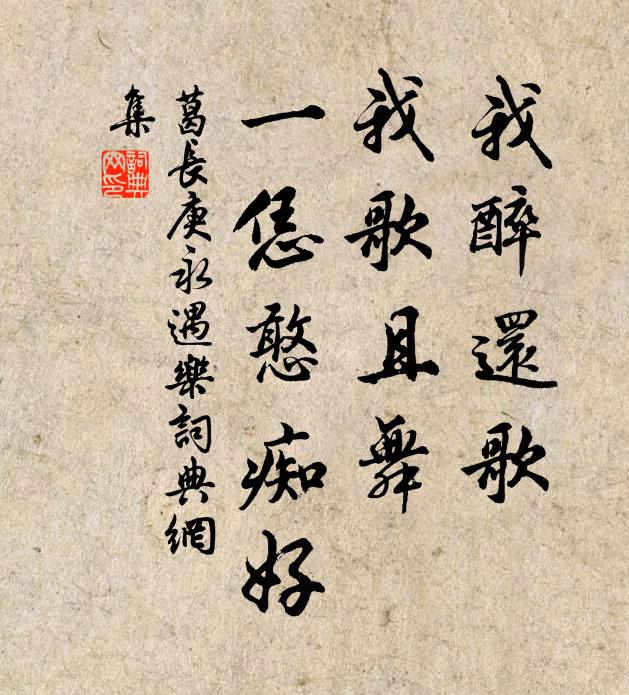 我醉還歌
我歌且舞
一恁憨痴好
葛長庚永遇樂詞典網
集
詞典
网印